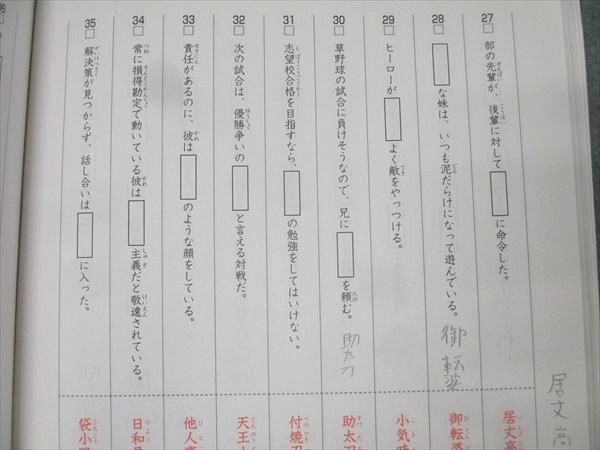 27
部の先輩が、後輩に対して□に命令した。
居丈高
28
□な妹は、いつも泥だらけになって遊んでいる。
御転婆
御転婆
29
ヒーローが□よく敵をやっつける。
小気味
30
草野球の試合に負けそうなので、兄に□を頼む。
助太刀
助太刀
31
志望校合格を目指すなら、□の勉強をしてはいけない。
付焼刃
32
次の試合は、優勝争いの□と言える対戦だ。
天王
33
責任があるのに、彼は□のような顔をしている。
他人
34
常に損得勘定で動いている彼は□主義だと敬遠されている。
日和
35
解決策が見つからず、話し合いは□に入った。
袋小
居丈高
36